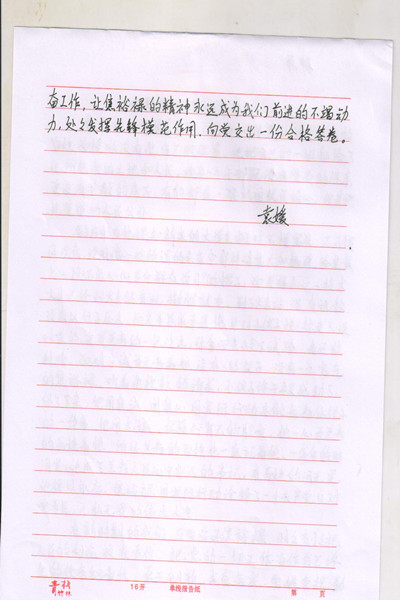 奋工作，让焦裕禄的精神永远成为我们前进的不竭动
力，处处发挥先锋模范作用，向党交出一份合格答卷。
袁媛
16开 单线报告纸 第 页